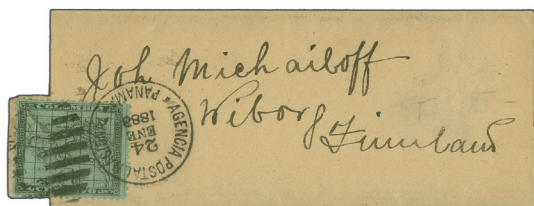 Joh. Michailoff
Wiborg
Finnland
AGENCIA POSTAL
PANAMA
24
ENE
1888